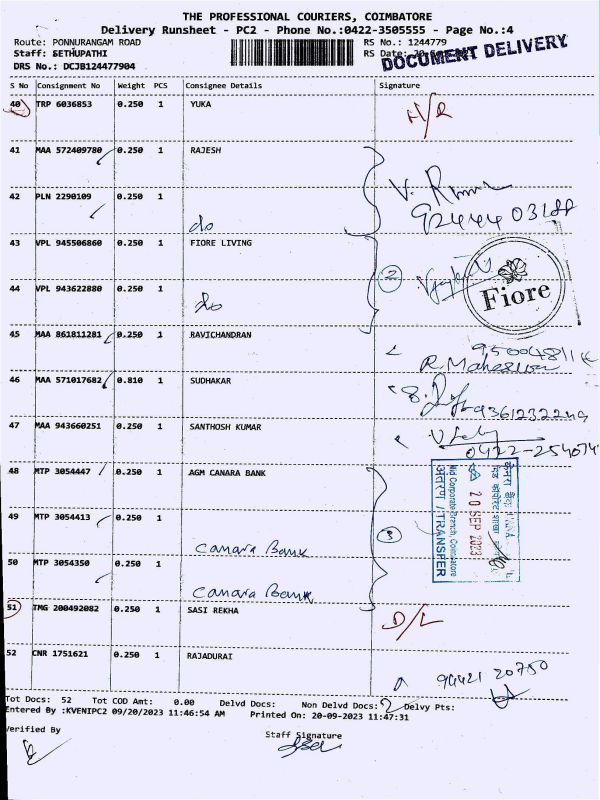 THE PROFESSIONAL COURIERS, COIMBATORE
Delivery Runsheet - PC2 - Phone No.:0422-3505555 - Page No.:4
Route: PONNURANGAM ROAD RS No.: 1244779
Staff: SETHUPATHI RS Date:
DOCUMENT DELIVERY
DRS No.: DCJB124477904
S No Consignment No Weight PCS Consignee Details Signature
40 TRP 6036853 0.250 1 YUKA
41 MAA 572409780 0.250 1 RAJESH
42 PLN 2290109 0.250 1
do
43 VPL 945506860 0.250 1 FIORE LIVING
44 VPL 943622880 0.250 1
do
2
Fiore
45 MAA 861811281 0.250 1 RAVICHANDRAN
R. Maheswari
46 MAA 571017682 0.810 1 SUDHAKAR
9361232249
47 MAA 943660251 0.250 1 SANTHOSH KUMAR
48 MTP 3054447 0.250 1 AGM CANARA BANK
49 MTP 3054413 0.250 1
Canara Bank
50 MTP 3054350 0.250 1
Canara Bank
3
Mid Corporate Branch, Coimbatore
20 SEP 2023
अंतरण / TRANSFER
51 TMG 200492082 0.250 1 SASI REKHA
D/L
52 CNR 1751621 0.250 1 RAJADURAI
94421 20750
Tot Docs: 52 Tot COD Amt: 0.00 Delvd Docs: Non Delvd Docs: 2 Delvy Pts:
Entered By :KVENIPC2 09/20/2023 11:46:54 AM Printed On: 20-09-2023 11:47:31
Verified By Staff Signature